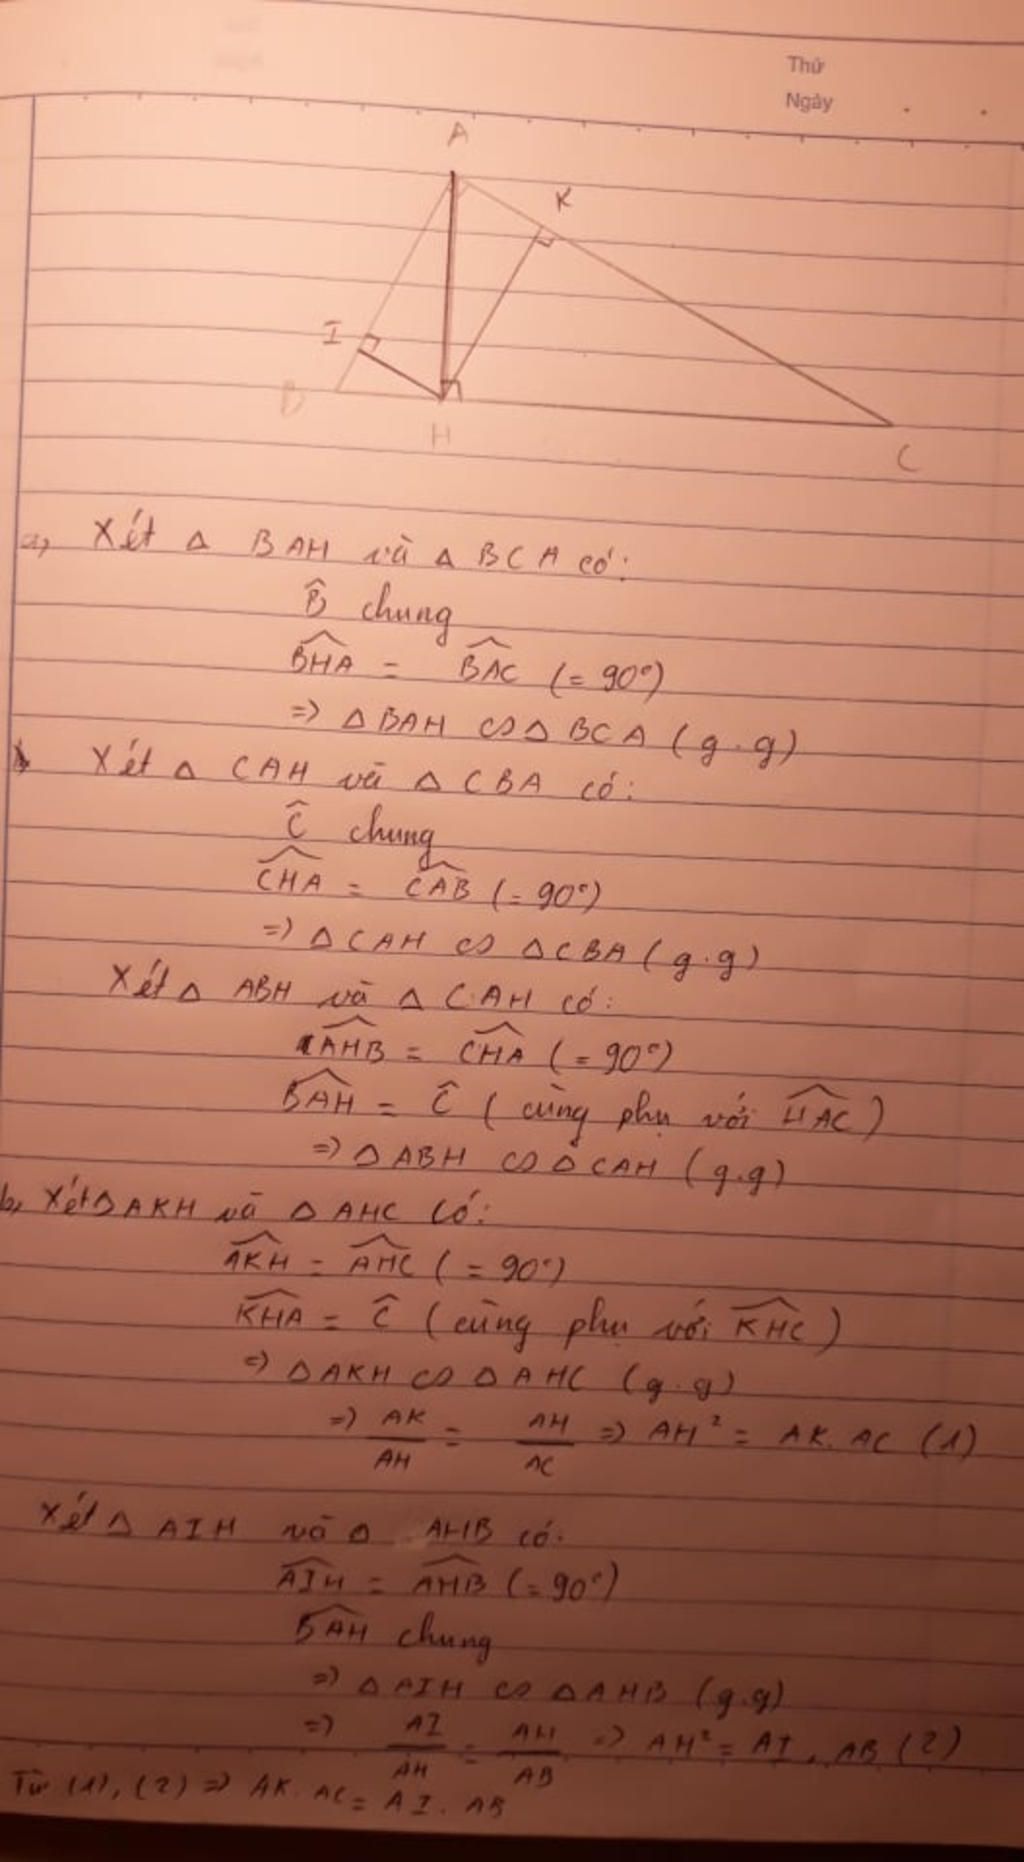 Thứ
Ngày
A
K
I
B
H
C
a, Xét Δ BAH và Δ BCA có:
B̂ chung
\widehat{BHA} = \widehat{BAC} (= 90°)
=> Δ BAH ∽ Δ BCA (g.g)
Xét Δ CAH và Δ CBA có:
Ĉ chung
\widehat{CHA} = \widehat{CAB} (= 90°)
=> Δ CAH ∽ Δ CBA (g.g)
Xét Δ ABH và Δ CAH có:
\widehat{AHB} = \widehat{CHA} (= 90°)
\widehat{BAH} = Ĉ (cùng phụ với \widehat{HAC})
=> Δ ABH ∽ Δ CAH (g.g)
b, Xét Δ AKH và Δ AHC có:
\widehat{AKH} = \widehat{AHC} (= 90°)
\widehat{KHA} = Ĉ (cùng phụ với \widehat{KHC})
=> Δ AKH ∽ Δ AHC (g.g)
=> AK/AH = AH/AC => AH² = AK. AC (1)
Xét Δ AIH và Δ AHB có:
\widehat{AIH} = \widehat{AHB} (= 90°)
\widehat{BAH} chung
=> Δ AIH ∽ Δ AHB (g.g)
=> AI/AH = AH/AB => AH² = AI. AB (2)
Từ (1), (2) => AK. AC = AI. AB